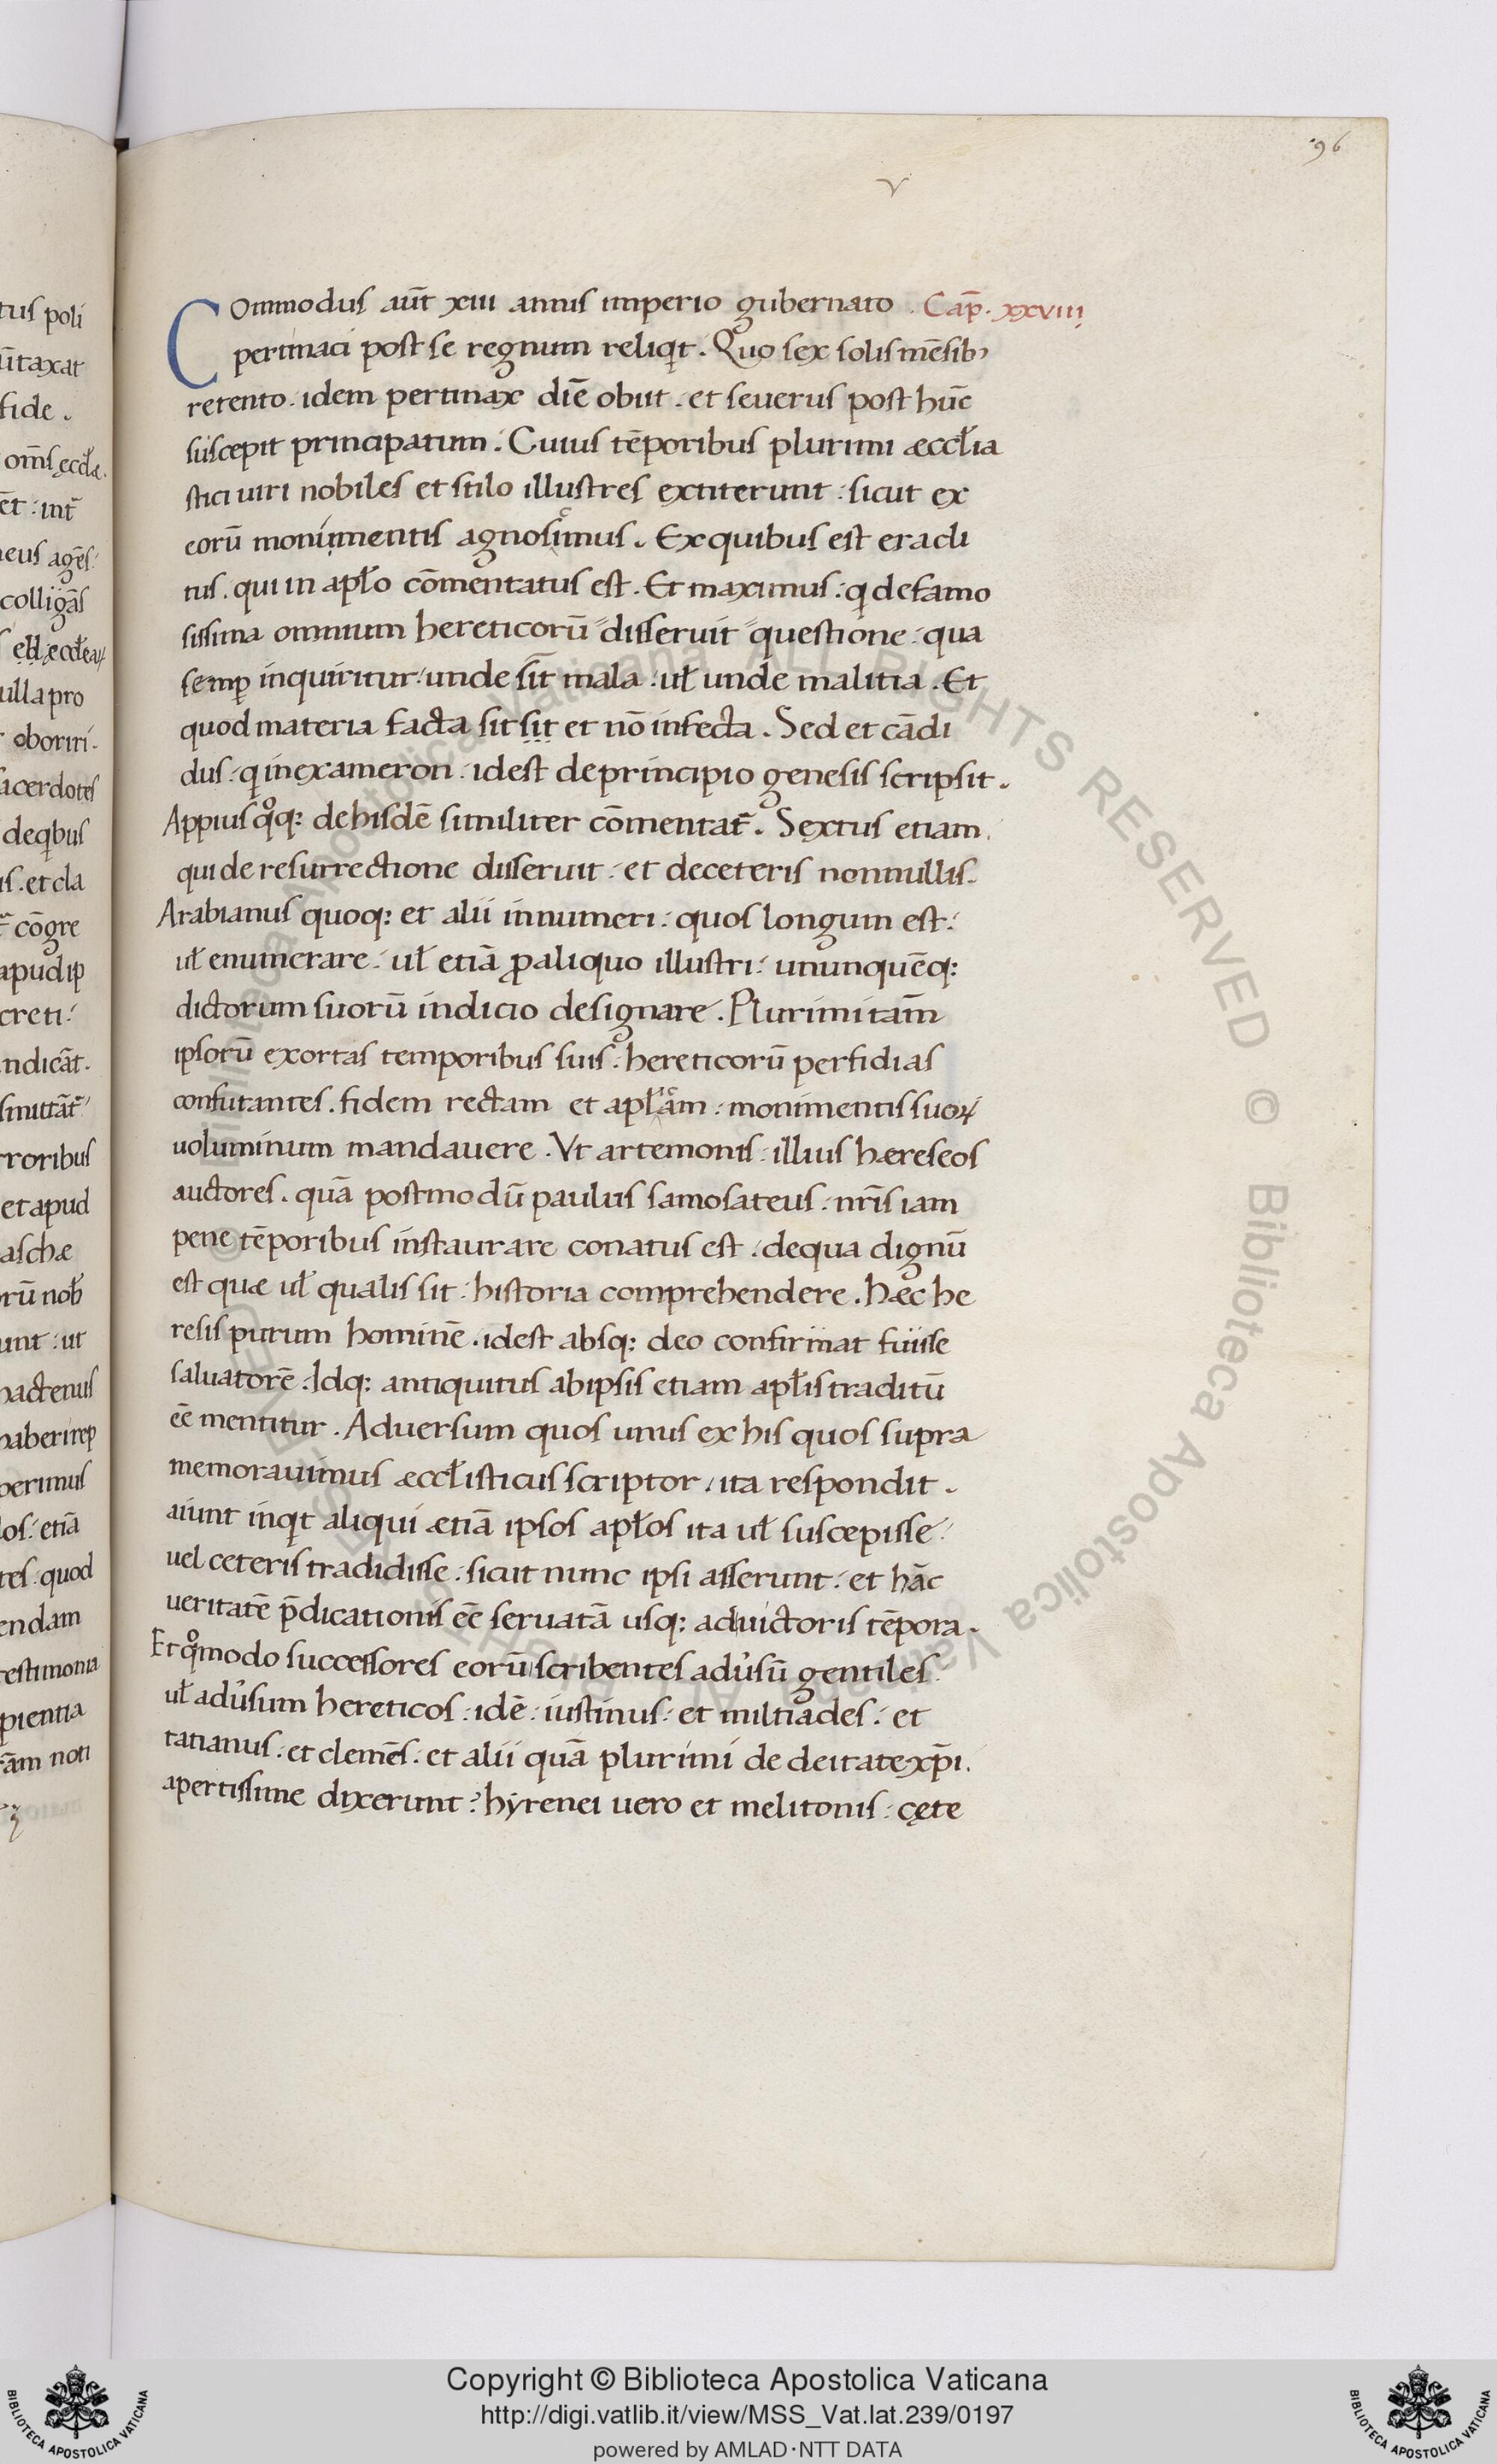 96
v
COmmodus aūt xiii annis imperio gubernato . Cap̄. xxviii
pertinaci post se regnum reliqit . Quo sex solis mēsib;
retento . idem pertinax diē obiit . et seuerus post hūc
suscepit principatum . Cuius tēporibus plurimi æccl̄ia
stici uiri nobiles et stilo illustres extiterunt : sicut ex
eorū monimentis agnoscimus . Ex quibus est eracli
tus . qui in apl̄o cōmentatus est . Et maximus : q de famo
sissima omnium hereticorū disseruit questione : qua
semp inquiritur : unde sīt mala : ul̄ unde malitia . Et
quod materia facta sit sit et nō infecta . Sed et cādi
dus : q in exameron : idest de principio genesis scripsit .
Appius qoq: de hisdē similiter cōmentat̄ . Sextus etiam
qui de resurrectione disseruit : et de ceteris nonnullis .
Arabianus quoq: et alii innumeri : quos longum est :
ul̄ enumerare : ul̄ etiā p aliquo illustri : ununquēq:
dictorum suorū indicio designare . Plurimi tam̄
ipsorū exortas temporibus suis : hereticorū perfidias
confutantes . fidem rectam et apl̄icam : monimentis suoꝝ
uoluminum mandauere . Vt artemonis : illius hæreseos
auctores . quā postmodū paulus samosateus : nr̄is iam
pene tēporibus instaurare conatus est : de qua dignū
est quæ ul̄ qualis sit : historia comprehendere . hæc he
resis purum hominē . idest absq: deo confirmat fuisse
saluatorē . Idq: antiquitus ab ipsis etiam apl̄is traditū
eē mentitur . Aduersum quos unus ex his quos supra
memorauimus æccl̄isticus scriptor / ita respondit .
aiunt inqit aliqui ætiā ipsos apl̄os ita ul̄ suscepisse :
uel ceteris tradidisse : sicut nunc ipsi asserunt : et hāc
ueritatē p̄dicationis eē seruatā usq: ad uictoris tēpora .
Et qomodo successores eorū scribentes adu̓sū gentiles :
ul̄ adu̓sum hereticos : idē : iustinus : et miltiades : et
tatianus : et clemēs : et alii quā plurimi de deitate xp̄i .
apertissime dixerunt ? hyrenei uero et melitonis : cęte
Copyright © Biblioteca Apostolica Vaticana
http://digi.vatlib.it/view/MSS_Vat.lat.239/0197
powered by AMLAD·NTT DATA